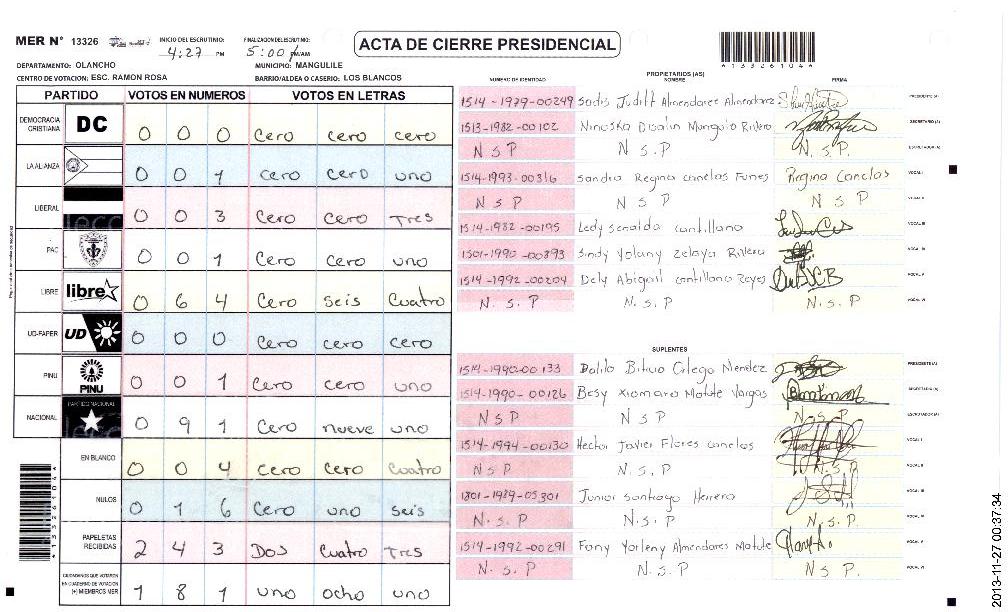 MER N° 13326 INICIO DEL ESCRUTINIO: 4:27 PM FINALIZACION DEL ESCRUTINIO: 5:00 PM/AM
ACTA DE CIERRE PRESIDENCIAL
4133261044
DEPARTAMENTO: OLANCHO MUNICIPIO: MANGULILE
CENTRO DE VOTACION: ESC. RAMON ROSA BARRIO/ALDEA O CASERIO: LOS BLANCOS
PARTIDO VOTOS EN NUMEROS VOTOS EN LETRAS
DEMOCRACIA CRISTIANA DC 0 0 0 cero cero cero
LA ALIANZA 0 0 1 cero cero uno
LIBERAL 0 0 3 cero cero Tres
PAC 0 0 1 cero cero uno
LIBRE libre 0 6 4 cero seis cuatro
UD-FAPER UD 0 0 0 cero cero cero
PINU PINU 0 0 1 cero cero uno
NACIONAL PARTIDO NACIONAL 0 9 1 cero nueve uno
EN BLANCO 0 0 4 cero cero cuatro
NULOS 0 1 6 cero uno seis
PAPELETAS RECIBIDAS 2 4 3 Dos cuatro Tres
CIUDADANOS QUE VOTARON EN CUADERNO DE VOTACION (+) MIEMBROS MER 1 8 1 uno ocho uno
4133261044
PROPIETARIOS (AS)
NUMERO DE IDENTIDAD NOMBRE FIRMA
1514-1979-00249 Sadis Judith Almendares Almendarez PRESIDENTE (A)
1513-1982-00102 Ninoska Munguia Rivera SECRETARIO (A)
N S P N S.P N.S.P. ESCRUTADOR (A)
1514-1993-00316 Sandra Regina canelas Funes Regina Canelas VOCAL I
N S P N S P N S P VOCAL II
1514-1982-00195 Ledy cantillano VOCAL III
1501-1990-00893 Sindy Yolany Zelaya Rivera VOCAL IV
1514-1992-00204 Dely Abigail cantillano Reyes VOCAL V
N.S.P N.S.P N.S.P VOCAL VI
SUPLENTES
1514-1990-00133 Dalila Mendez PRESIDENTE (A)
1514-1990-00126 Besy Xiomara Matute Vargas SECRETARIO (A)
N S P N S P N.S.P ESCRUTADOR (A)
1514-1994-00130 Hector Javier Flores canelas VOCAL I
N S P N.S.P N.S.P VOCAL II
1801-1989-05301 Junior Santiago Herrera VOCAL III
N.S.P N.S.P N.S.P. VOCAL IV
1514-1992-00291 Fany Yorleny Almendares Matute VOCAL V
N.S.P. N.S.P N S P. VOCAL VI
2013-11-27 00:37:34